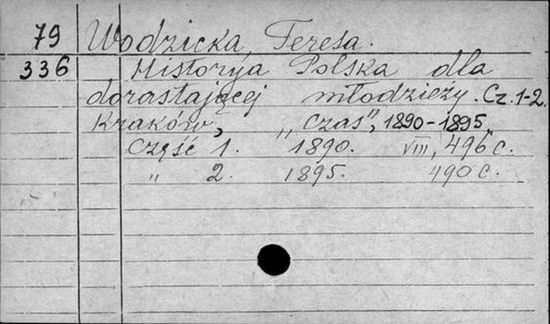 79 Wodzicka, Teresa.
336 Historya Polska dla
dorastającej młodzieży. Cz. 1-2.
Kraków, „Czas", 1890-1895.
Część 1. 1890. VIII, 496 c.
„ 2. 1895. 490 c.